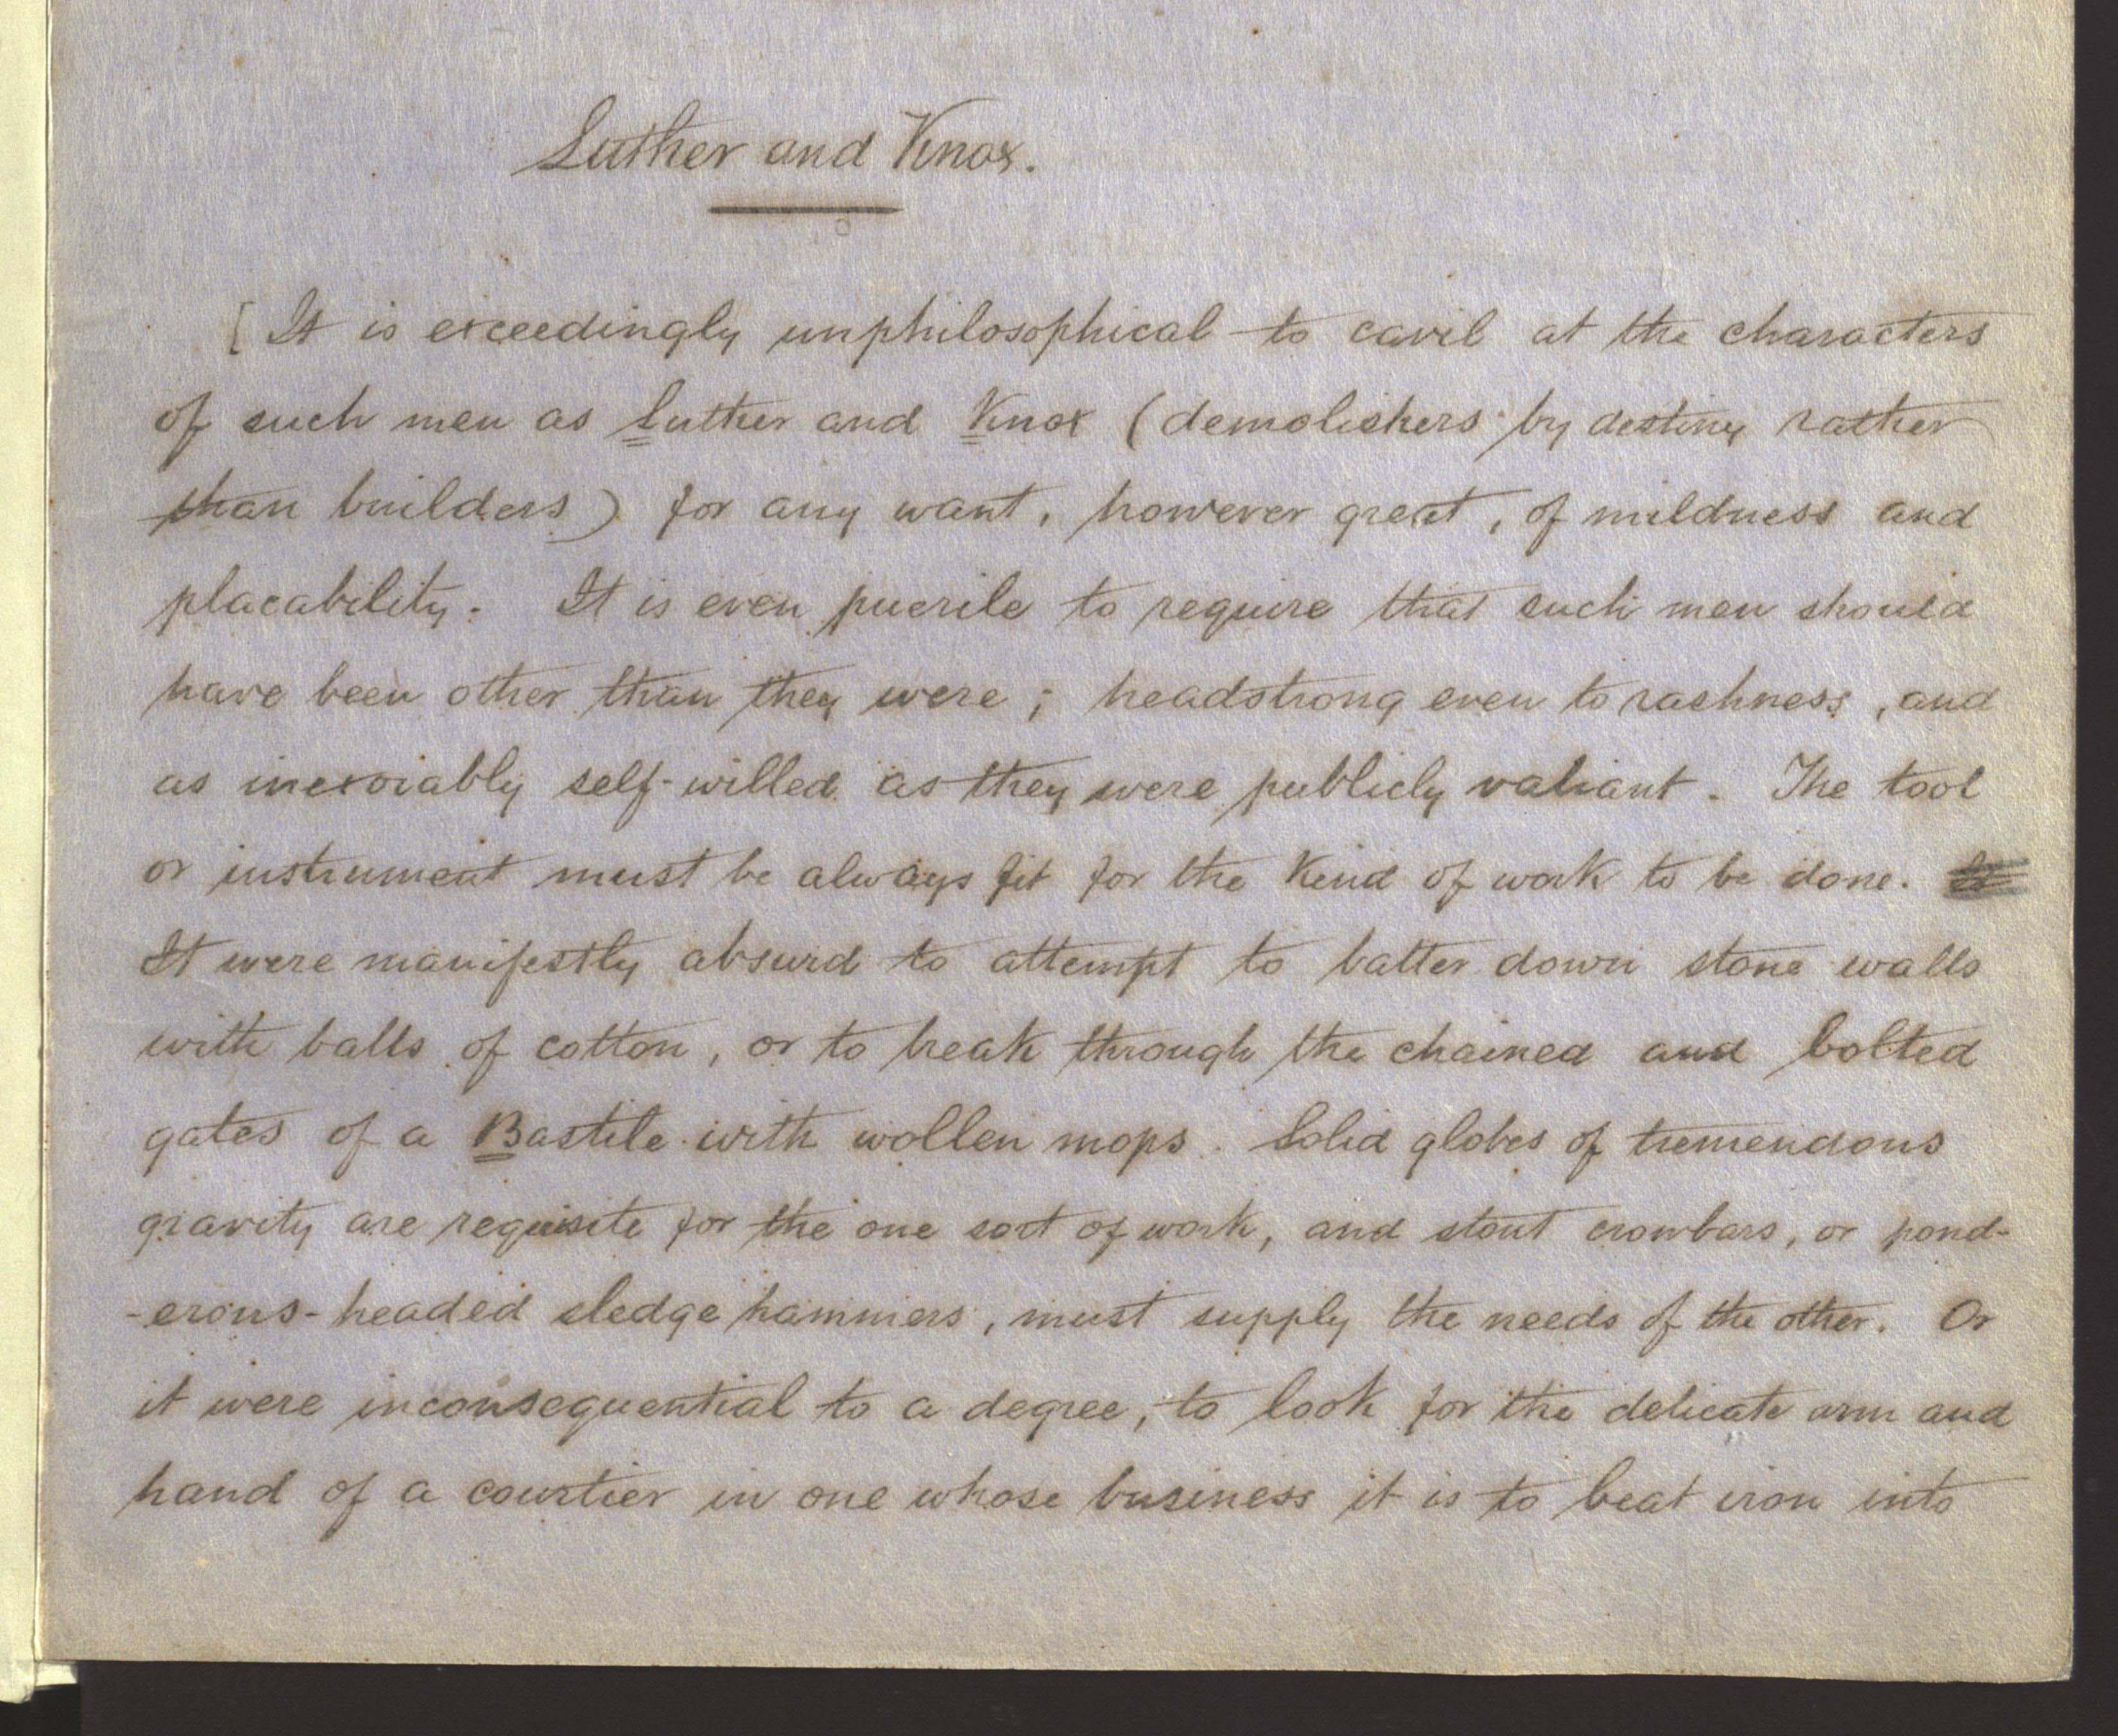 Luther and Knox.
[It is exceedingly unphilosophical to cavil at the characters
of such men as Luther and Knox (demolishers by destiny rather
than builders) for any want, however great, of mildness and
placability. It is even puerile to require that such men should
have been other than they were; headstrong even to rashness, and
as inexorably self-willed as they were publicly valiant. The tool
or instrument must be always fit for the kind of work to be done.
It were manifestly absurd to attempt to batter down stone walls
with balls of cotton, or to break through the chained and bolted
gates of a Bastile with wollen mops. Solid globes of tremendous
gravity are requisite for the one sort of work, and stout crowbars, or pond-
-erous-headed sledge hammers, must supply the needs of the other. Or
it were inconsequential to a degree, to look for the delicate arm and
hand of a courtier in one whose business it is to beat iron into